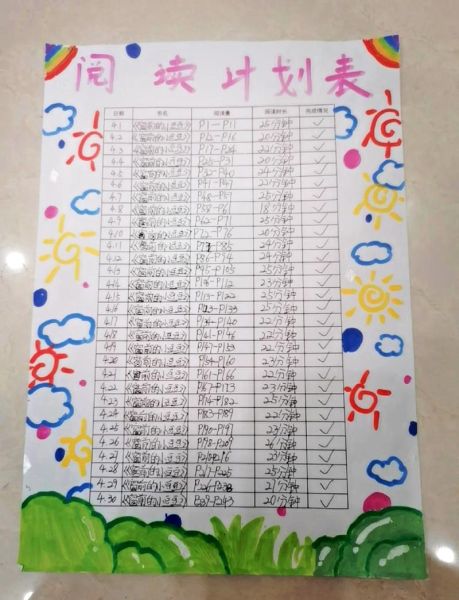 阅读计划表
日期 书名 阅读量 阅读时长 完成情况
4.1 《窗前的小豆豆》 25分钟 ✓
4.2 《窗前的小豆豆》 20分钟 ✓
4.3 《窗前的小豆豆》 P17-P24 22分钟 ✓
4.4 《窗前的小豆豆》 P25-P31 20分钟 ✓
4.5 《窗前的小豆豆》 P32-P40 24分钟 ✓
4.6 《窗前的小豆豆》 P41-P47 21分钟 ✓
4.7 《窗前的小豆豆》 P48-P57 25分钟 ✓
4.8 《窗前的小豆豆》 P58-P61 18分钟 ✓
4.9 《窗前的小豆豆》 P62-P71 25分钟 ✓
4.10 《窗前的小豆豆》 P72-P76 20分钟 ✓
4.11 《窗前的小豆豆》 P77-P85 24分钟 ✓
4.12 《窗前的小豆豆》 P86-P94 24分钟 ✓
4.13 《窗前的小豆豆》 P95-P105 25分钟 ✓
4.14 《窗前的小豆豆》 P106-P112 23分钟 ✓
4.15 《窗前的小豆豆》 P113-P122 25分钟 ✓
4.16 《窗前的小豆豆》 P123-P133 25分钟 ✓
4.17 《窗前的小豆豆》 P134-P140 22分钟 ✓
4.18 《窗前的小豆豆》 P141-P146 22分钟 ✓
4.19 《窗前的小豆豆》 P147-P153 22分钟 ✓
4.20 《窗前的小豆豆》 P154-P160 23分钟 ✓
4.21 《窗前的小豆豆》 P161-P166 22分钟 ✓
4.22 《窗前的小豆豆》 P167-P173 23分钟 ✓
4.23 《窗前的小豆豆》 P174-P182 25分钟 ✓
4.24 《窗前的小豆豆》 P183-P189 22分钟 ✓
4.25 《窗前的小豆豆》 P190-P197 23分钟 ✓
4.26 《窗前的小豆豆》 P198-P209 26分钟 ✓
4.27 《窗前的小豆豆》 P210-P216 23分钟 ✓
4.28 《窗前的小豆豆》 P217-P225 25分钟 ✓
4.29 《窗前的小豆豆》 21分钟 ✓
4.30 《窗前的小豆豆》 20分钟 ✓